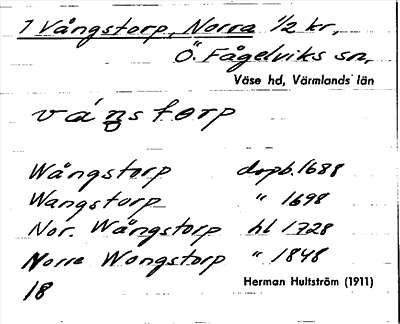 1 Vångstorp, Norra 1/2 kr,
Ö. Fågelviks sn,
Väse hd, Värmlands län
váŋstorp
Wångstorp dopb. 1688
Wangstorp " 1698
Nor. Wångstorp hl 1728
Norra Wongstorp " 1848
18
Herman Hultström (1911)